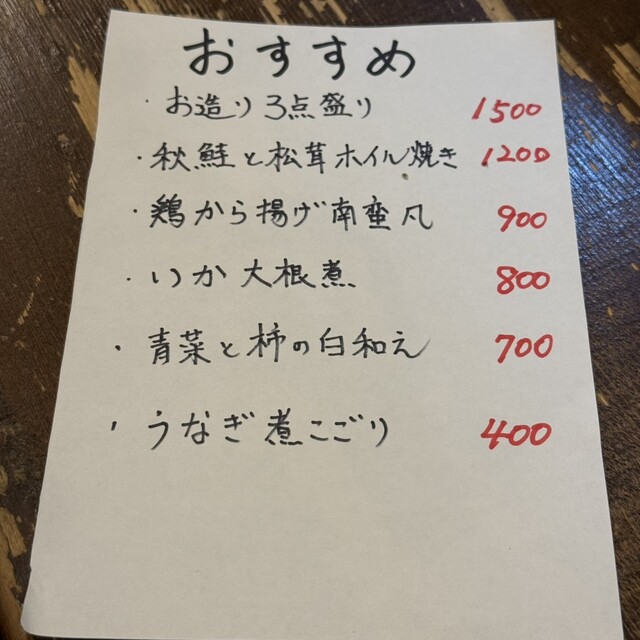 おすすめ
・お造り3点盛り 1500
・秋鮭と松茸ホイル焼き 1200
・鶏から揚げ南蛮凡 900
・いか大根煮 800
・青菜と柿の白和え 700
・うなぎ煮こごり 400